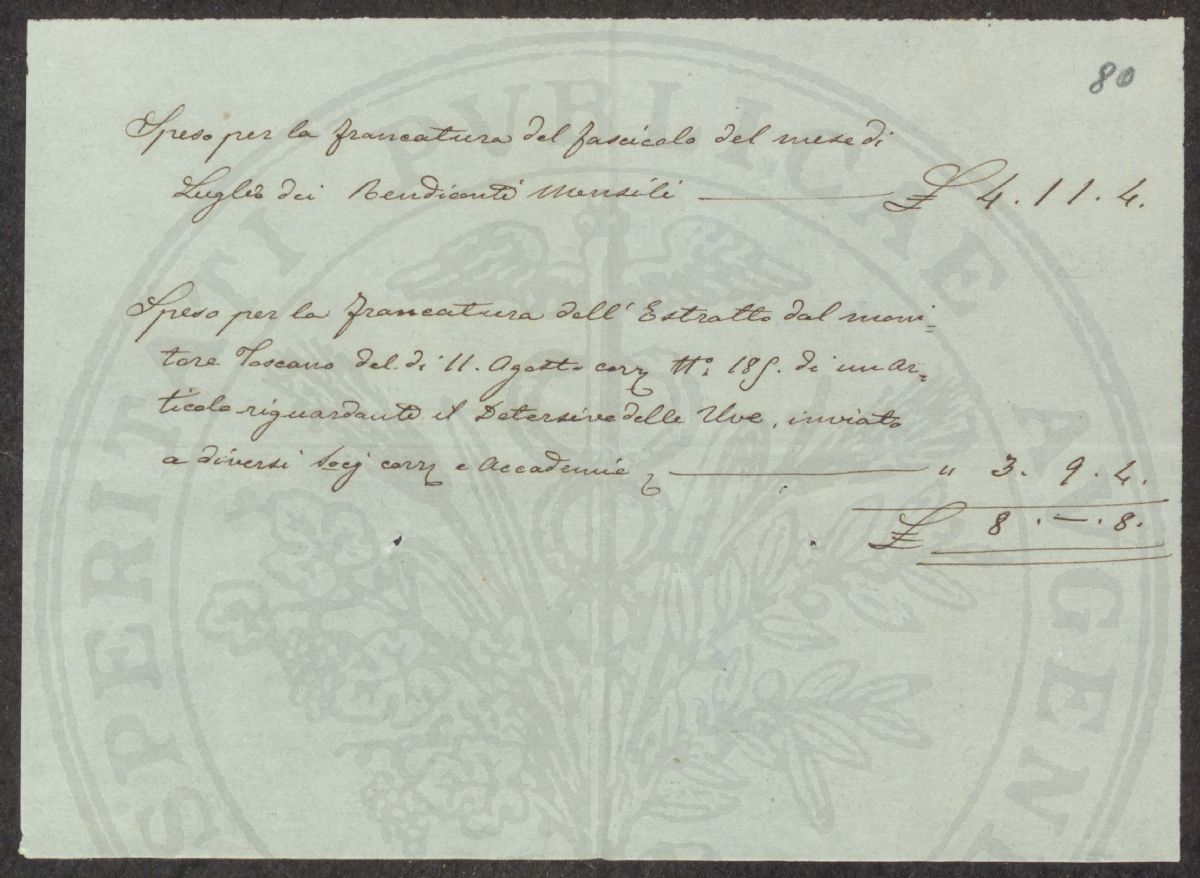 80
Speso per la francatura del fascicolo del mese di
Luglio dei Rendiconti Mensili — £ 4.11.4.
Speso per la francatura dell'Estratto dal moni=
tore Toscano del dì 11. Agosto corr. N.º 185. di un Ar=
ticolo riguardante il Detersivo delle Uve, inviato
a diversi Socj corr. e Accademie — " 3.9.4.
£ 8.—.8.
SPERITATI PVBLICAE AVGEN